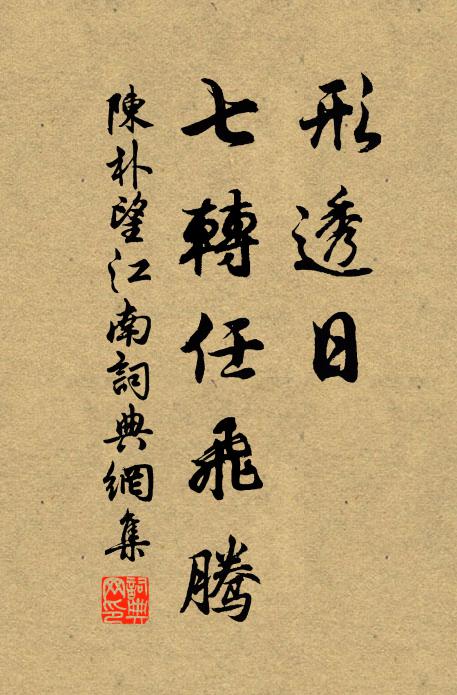 形透日
七轉任飛騰
陳朴望江南詞典網集
詞典網印